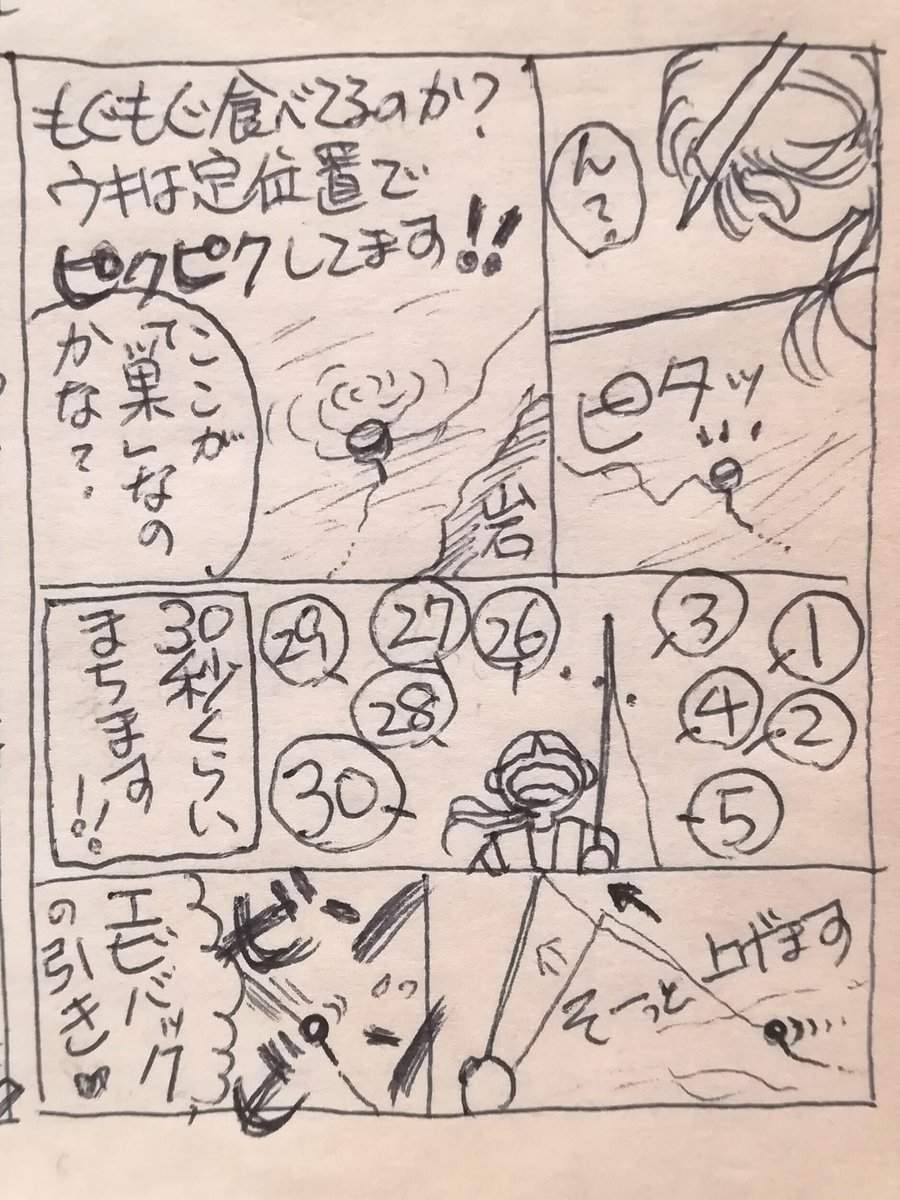 ん?
ピタッ
もぐもぐ食べてるのか?
ウキは定位置で
ピクピクしてます!!
ここが
「巣」なの
かな?
岩
1
2
3
4
5
26
27
28
29
30
30秒くらい
まちます!!
そーっと
上げます
ビーン
ビ
エビバック
の引き♥